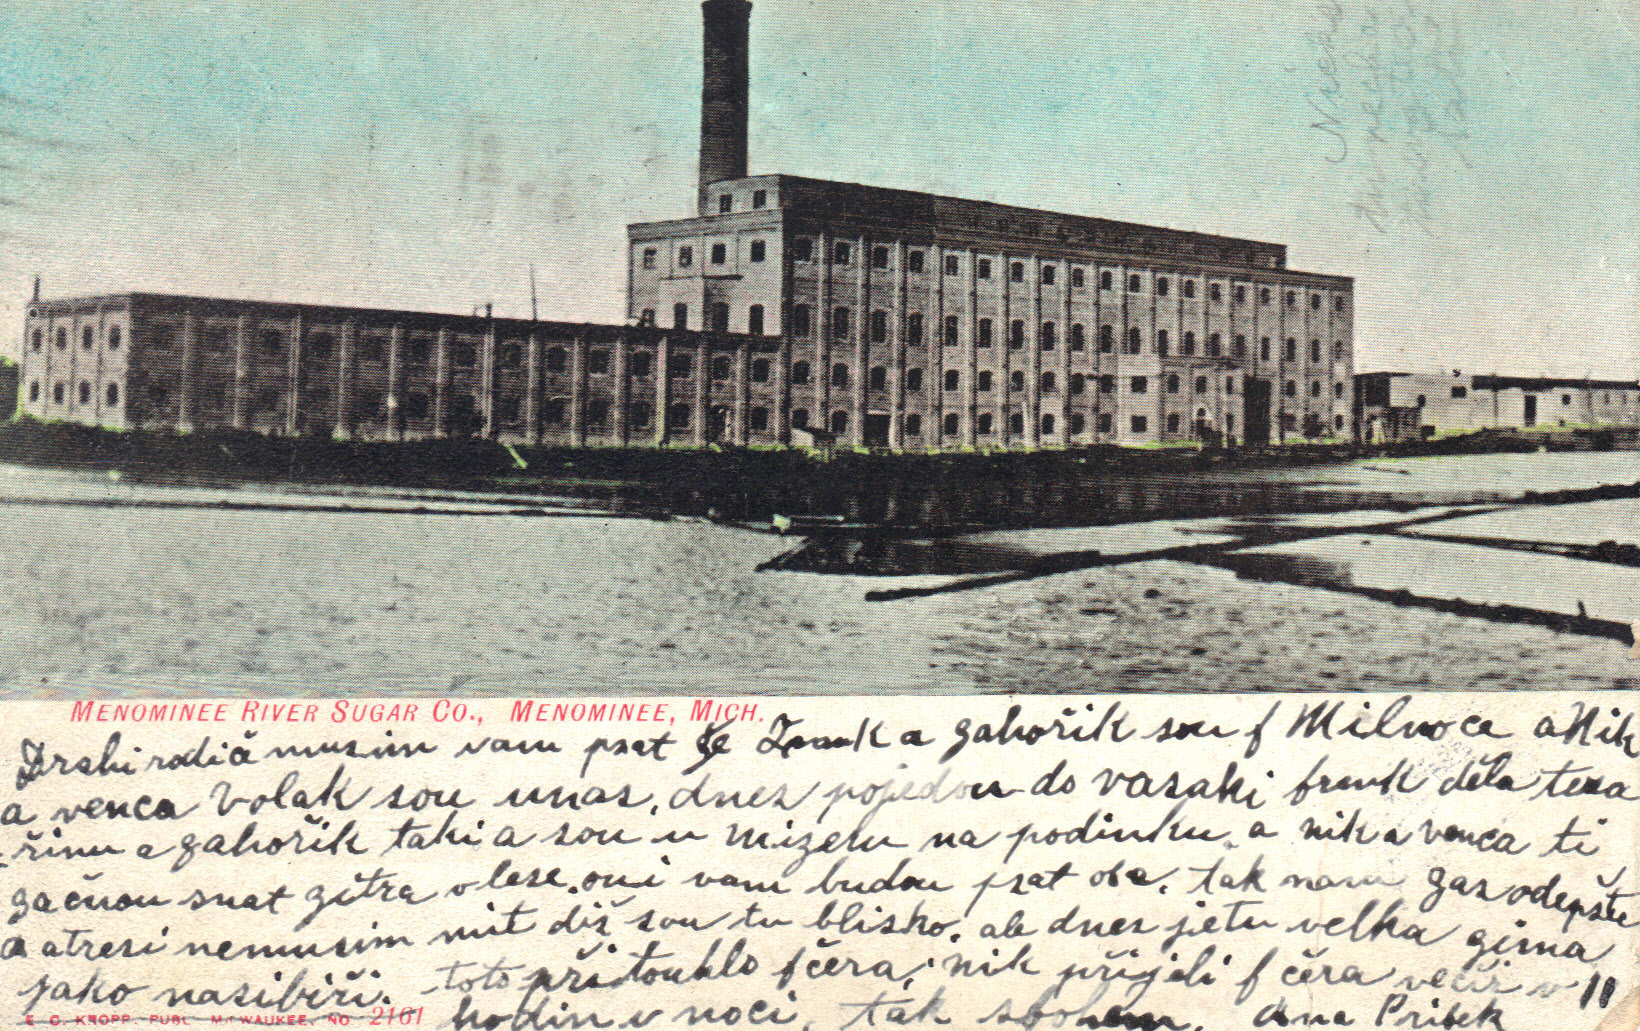 MENOMINEE RIVER SUGAR CO., MENOMINEE, MICH.
Drahi rodiče musim vam psat že Frank a gahořik sou f Milwoce a Nik
a venca Volak sou unas, dnez pojedou do vasaki frenk děla texa
řinu a gahořik taki a sou u mizeru na podinku a nik a venca ti
gačnou snat gitra vlese. oni vam budou psat oba. tak nam gas odepšte
a atresi nemusim mit diš sou tu blisko. ale dnes jetu velka gima
jako nasibiři. toto přitouhlo fčera, nik přijeli f čera večír v 11
hodin v noci, tak sbohem. Ana Pribek
E. C. KROPP. PUBL. MILWAUKEE. NO. 2161